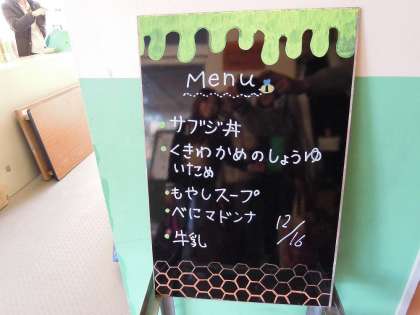 Menu
・サブジ丼
・くきわかめのしょうゆ
いため
・もやしスープ
・べにマドンナ
・牛乳
12/16